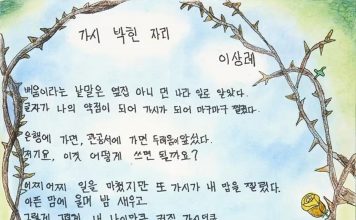 가시 박힌 자리
이삼례
배움이라는 낱말은 옆집 아니 먼 나라 일로 알았다.
글자가 나의 약점이 되어 가시가 되어 마구마구 찔렀다.
은행에 가면, 관공서에 가면 두려움이 앞섰다.
저기요, 이것 어떻게 쓰면 될까요?
어찌어찌 일을 마쳤지만 또 가시가 내 맘을 찔렀다.
아픈 맘에 울며 밤 새우고
그렇게 그렇게 내 나이만큼 커진